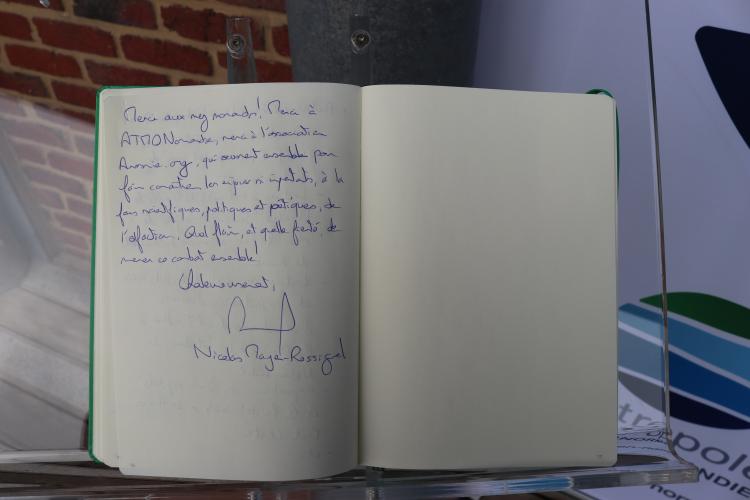 Merci aux nez normands! Merci à
ATMO Normandie, merci à l'association
Anosmie.org, qui œuvrent ensemble pour
faire connaître les enjeux si importants, à la
fois scientifiques, politiques et poétiques, de
l'olfaction. Quel flair, et quelle fierté, de
mener ce combat ensemble!
Chaleureusement,
Nicolas Mayer-Rossignol